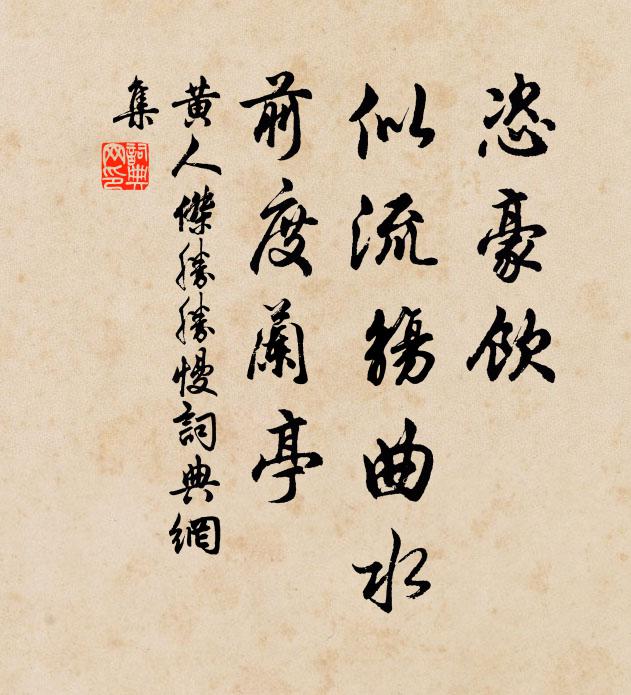 恣豪飲
似流觴曲水
前度蘭亭
黃人傑勝勝慢詞典網
集
詞典
网印